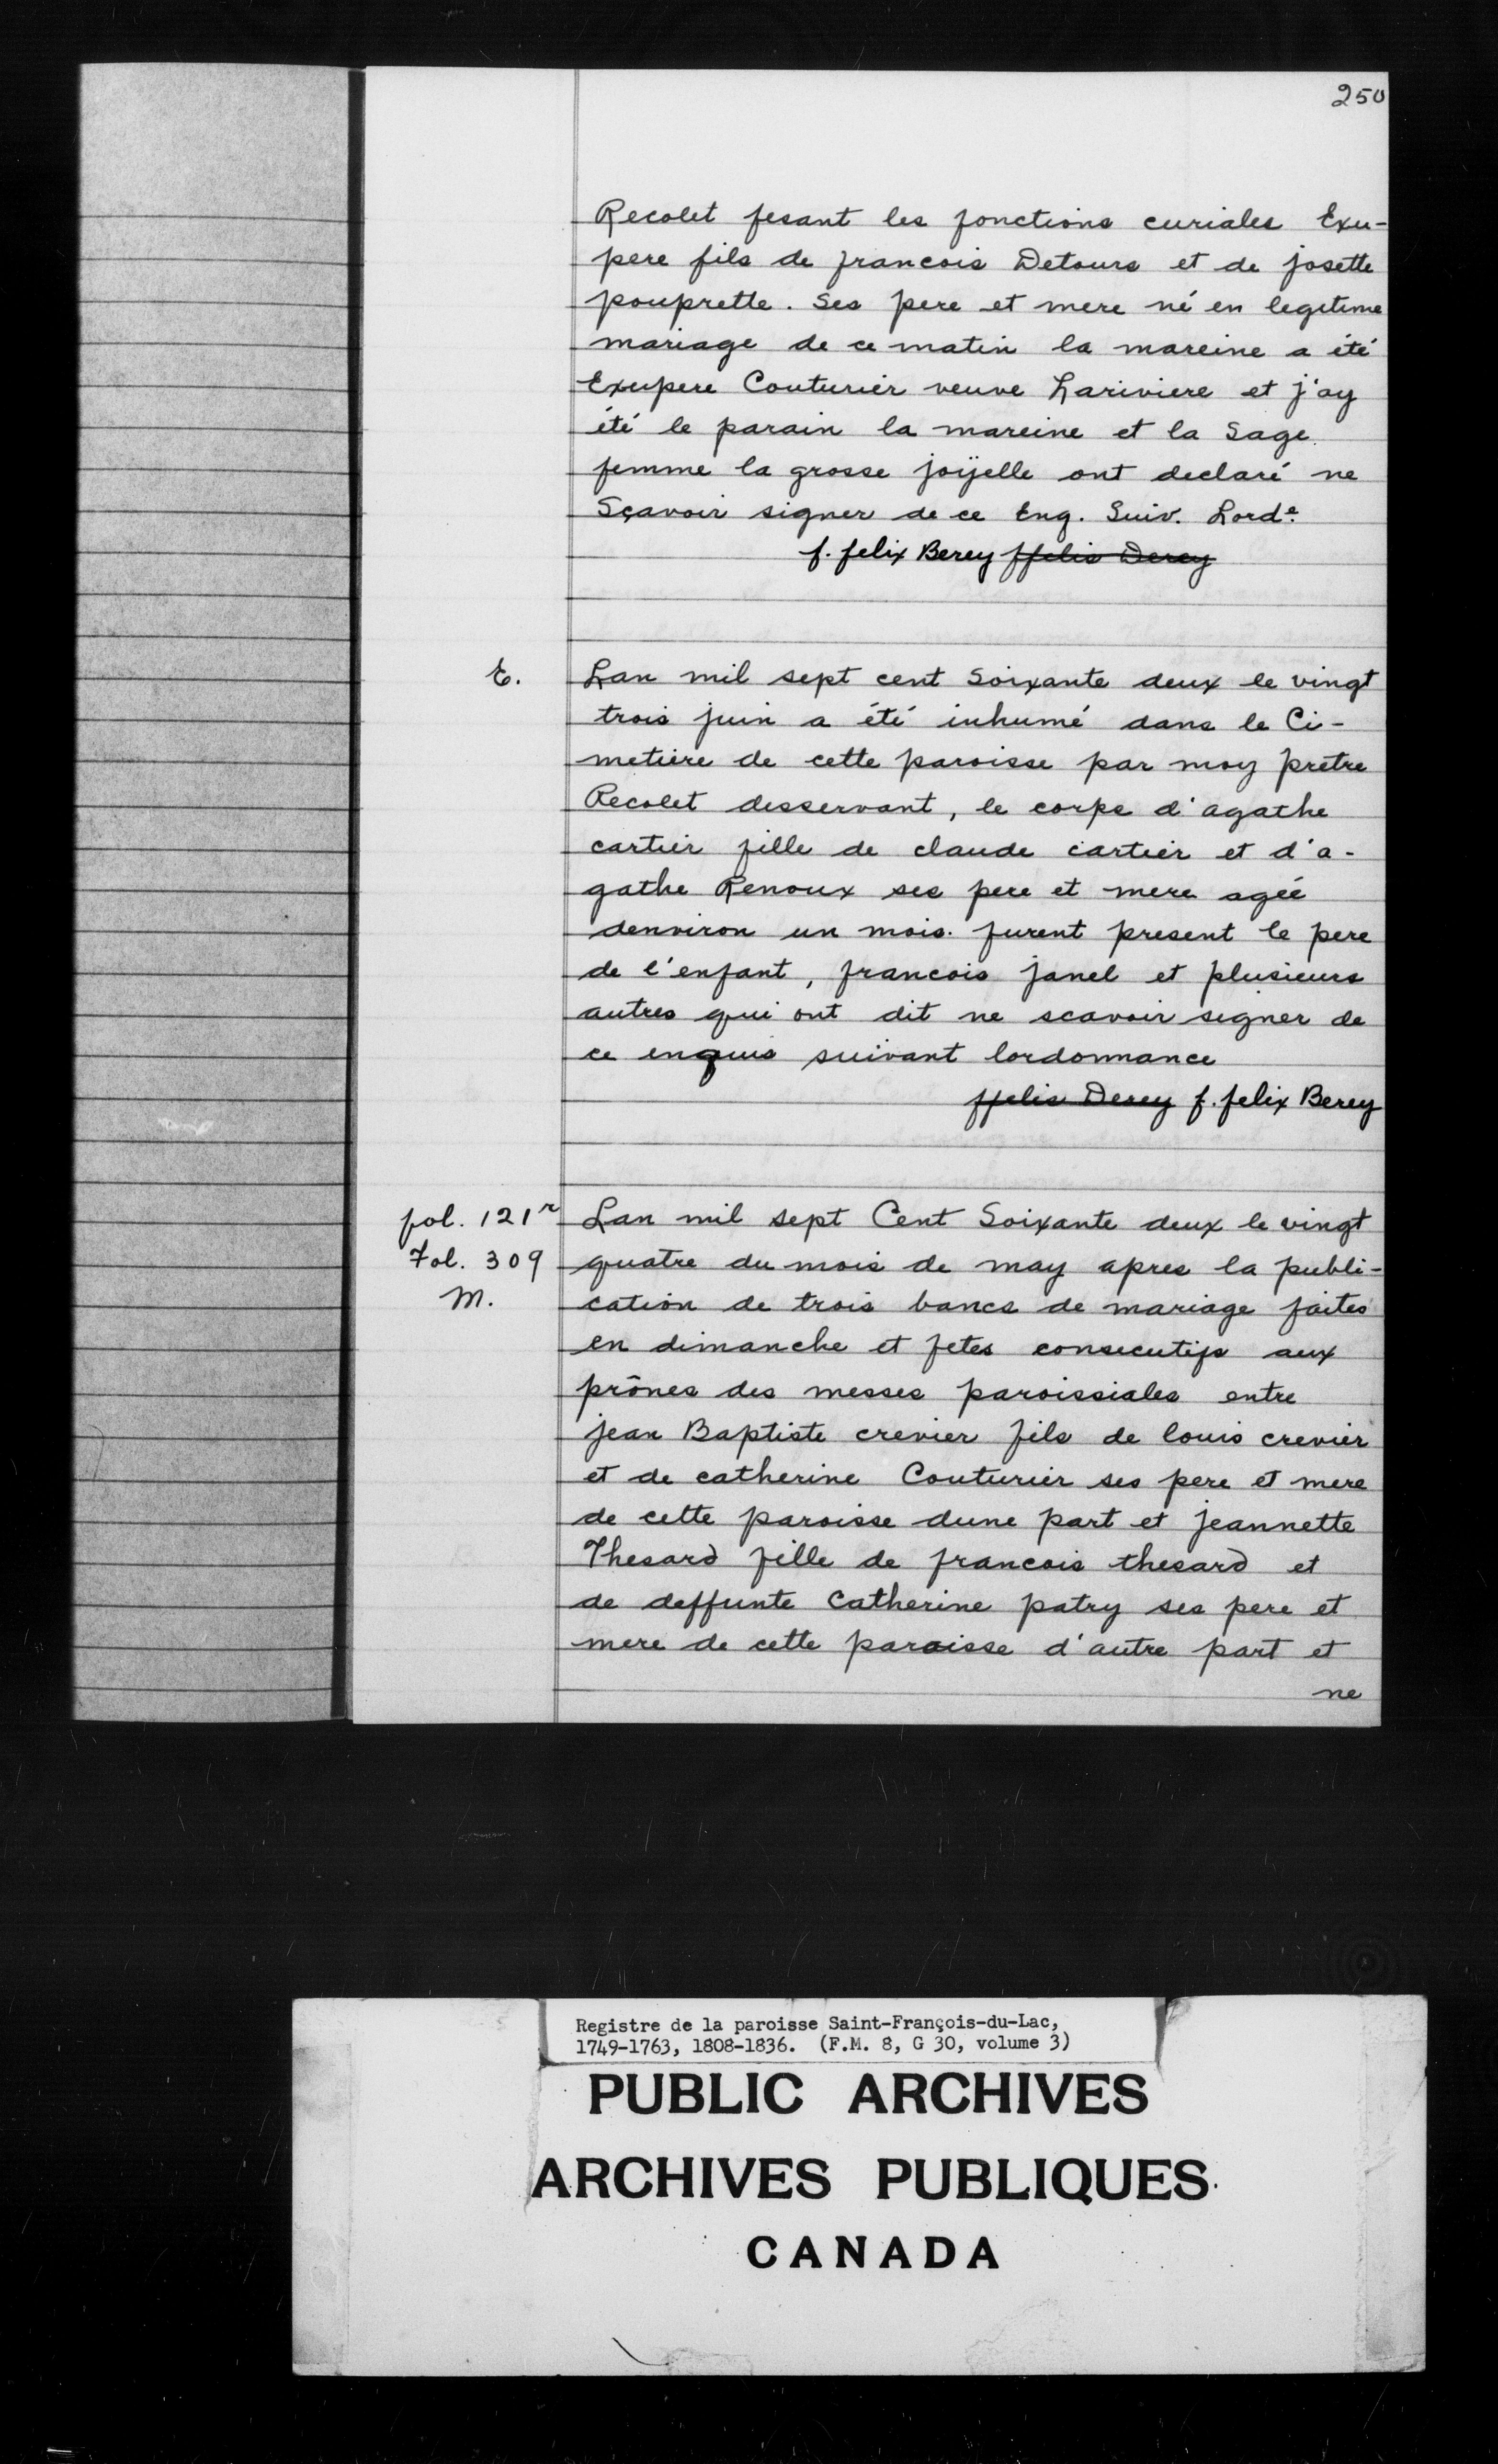 250
Recolet fesant les fonctions curiales Exu-
pere fils de francois Detours et de josette
pouprette. Ses pere et mere né en legitime
mariage de ce matin la mareine a été
Exupere Couturier veuve Lariviere et j'ay
été le parain la mareine et la Sage.
femme la grosse joÿelle ont declaré ne
Sçavoir signer de ce Enq. Suiv. Lord.e
f. felix Berey ffelis Derey
E. Lan mil sept cent Soixante deux le vingt
trois juin a été inhumé dans le Ci-
metiere de cette paroisse par moy pretre
Recolet desservant, le corps d'agathe
cartier fille de claude cartier et d'a-
gathe Renoux ses pere et mere ageé
denviron un mois. furent present le pere
de l'enfant, francois janel et plusieurs
autres qui ont dit ne scavoir signer de
ce enquis suivant lordonnance
ffelis Derey f. felix Berey
fol. 121r Lan mil sept Cent Soixante deux le vingt
Fol. 309 quatre du mois de may apres la publi-
M. cation de trois bancs de mariage faites
en dimanche et fetes consecutifs aux
prônes des messes paroissiales entre
jean Baptiste crevier fils de louis crevier
et de catherine Couturier ses pere et mere
de cette paroisse dune part et jeannette
Thesard fille de francois thesard et
de deffunte Catherine patry ses pere et
mere de cette paroisse d'autre part et
ne
Registre de la paroisse Saint-François-du-Lac,
1749-1763, 1808-1836. (F.M. 8, G 30, volume 3)
PUBLIC ARCHIVES
ARCHIVES PUBLIQUES
CANADA